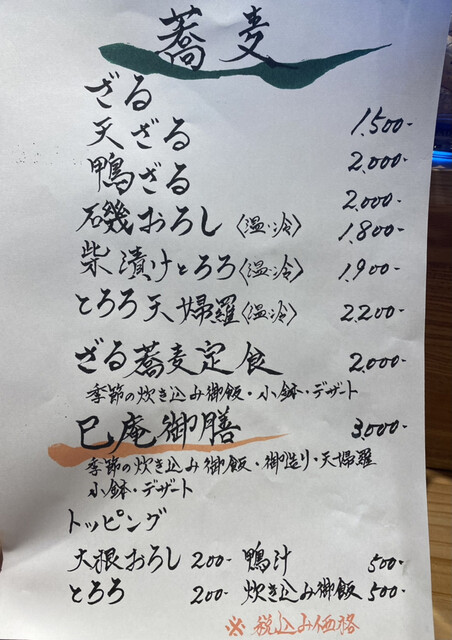 蕎麦
ざる 1.500-
天ざる 2.000-
鴨ざる 2.000-
磯おろし〈温・冷〉 1.800-
柴漬けとろろ〈温・冷〉 1.900-
とろろ天婦羅〈温・冷〉 2.200-
ざる蕎麦定食 2.000-
季節の炊き込み御飯・小鉢・デザート
巳庵御膳 3.000-
季節の炊き込み御飯・御造り・天婦羅
小鉢・デザート
トッピング
大根おろし 200- 鴨汁 500-
とろろ 200- 炊き込み御飯 500-
※税込み価格